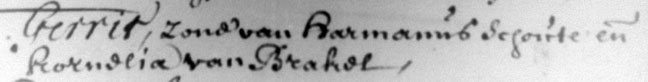 Gerrit, zone van Harmanus Schoute en
Kornelia van Brakel,